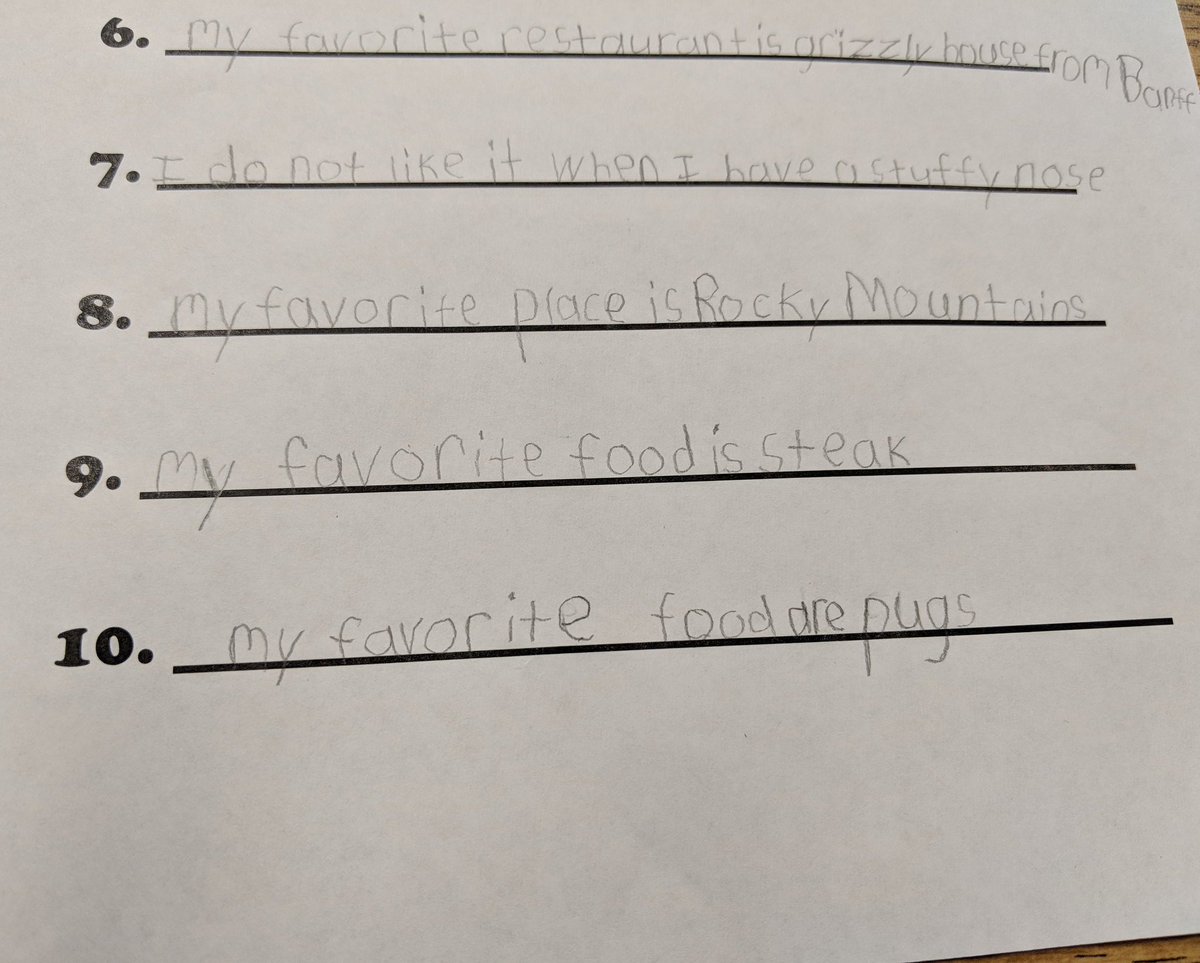 6. my favorite restaurant is grizzly house from Banff
7. I do not like it when I have a stuffy nose
8. my favorite place is Rocky Mountains
9. my favorite food is steak
10. my favorite food are pugs